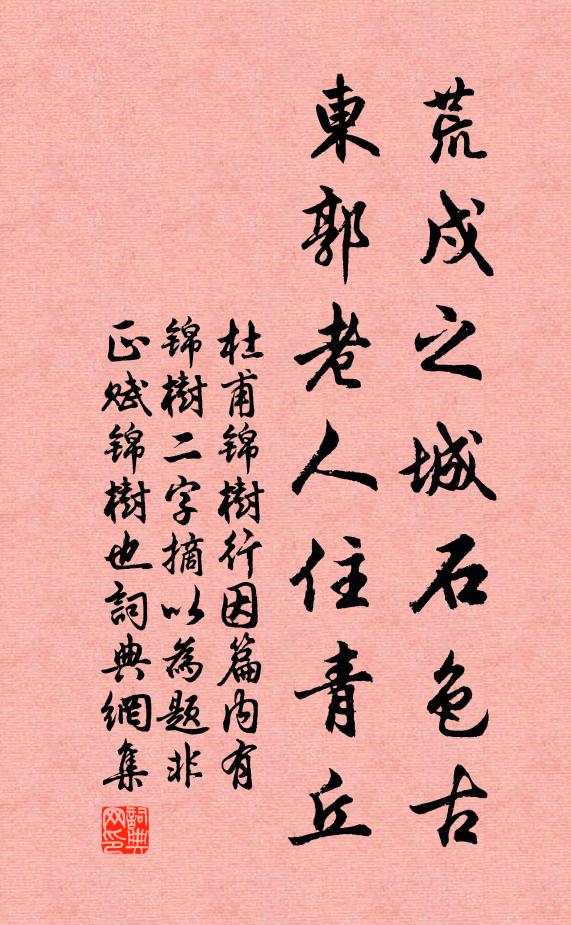 荒戍之城石色古
東郭老人住青丘
杜甫錦樹行因篇内有
錦樹二字摘以為題非
正赋錦樹也詞典網集
詞典网印